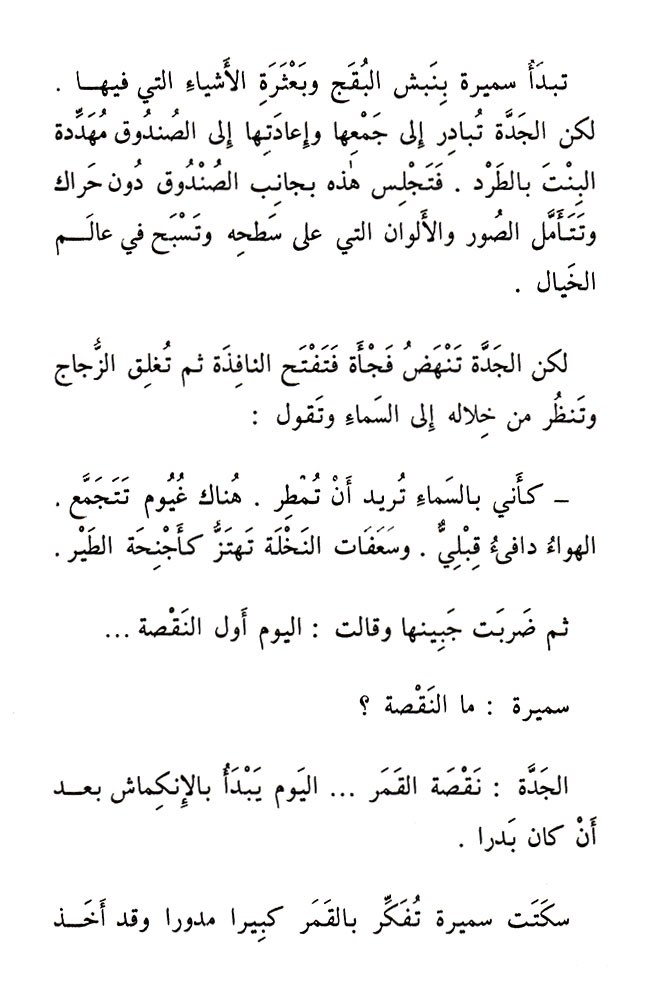 تبدَأُ سميرة بِنَبش البُقَج وبَعْثَرَةِ الأَشياءِ التي فيهـــا .
لكن الجَدَّة تُبادِر إلى جَمْعِها وإعادَتِها إلى الصُندُوق مُهَدِّدة
البِنْتَ بالطَرْد . فَتَجْلِس هٰذه بـجانِب الصُنْدُوق دُون حَراك
وتَتَأَمَّل الصُور والأَلوان التي على سَطحِه وتَسْبَح في عالَـــم
الخَيال .
لكن الجَدَّة تَنْهَضُ فَجْأَة فَتَفْتَح النافِذَة ثم تُغلِق الزُّجاج
وتَنظُر من خِلاله إلى السَماءِ وتَقول :
– كأَني بالسَماءِ تُريد أَنْ تُمْطِر . هُناك غُيُوم تَتَجَمَّع .
الهواءُ دافىءُ قِبْلِيٌّ . وسَعَفَات النَخْلَة تَهتَزُّ كأَجْنِحَة الطَيْر .
ثم ضَربَت جَبِينها وقالت : اليوم أَول النَقْصة ...
سميرة : ما النَقْصة ؟
الجَدَّة : نَقْصَة القَمَر ... اليَوم يَبْدَأُ بالإنكِماش بعـــد
أَنْ كان بَدرا .
سكَتَت سميرة تُفَكِّر بالقَمَر كبِيرا مدورا وقد أَخَـــذ